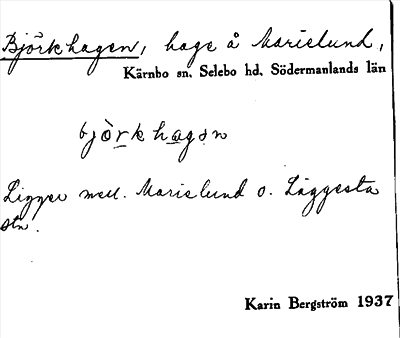 Björkhagen, hage å Marielund,
Kärnbo sn. Selebo hd. Södermanlands län
bjò̱rkha̱gən
Ligger mell. Marielund o. Läggesta
stn.
Karin Bergström 1937